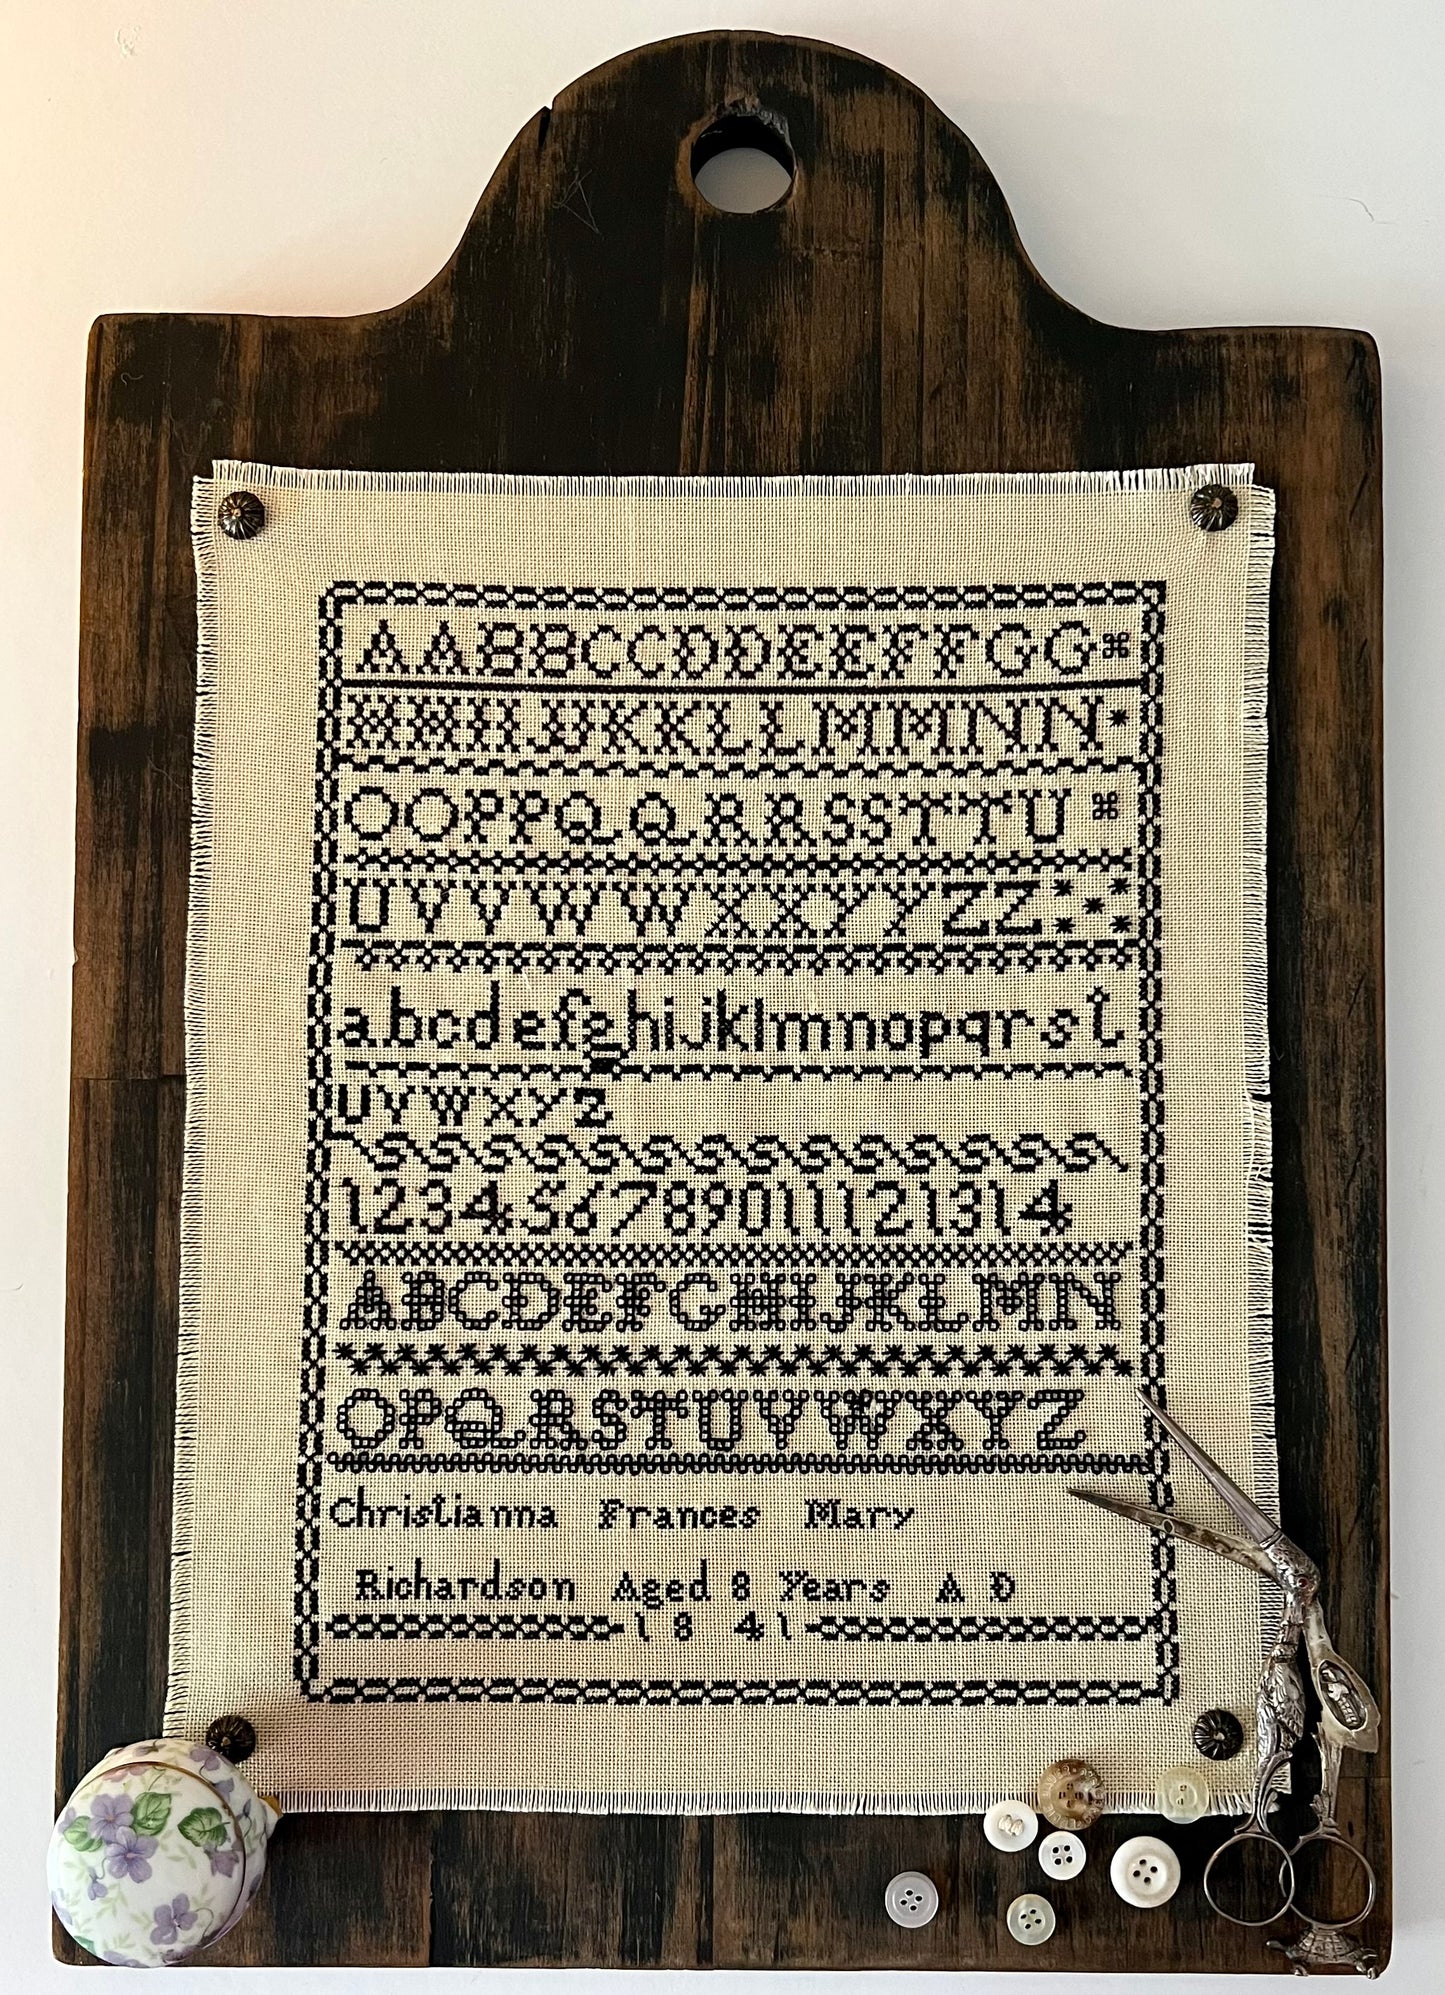 AABBCCDDEEFFGG
HHIIJJKKLLMMNN
OOPPQQRRSSTTU
UVVWWXXYYZZ
abcdefghijklmnopqrst
uvwxyz
1234567890 11 12 13 14
ABCDEFGHIJKLMN
OPQRSTUVWXYZ
Christianna Frances Mary
Richardson Aged 8 Years A D
1841